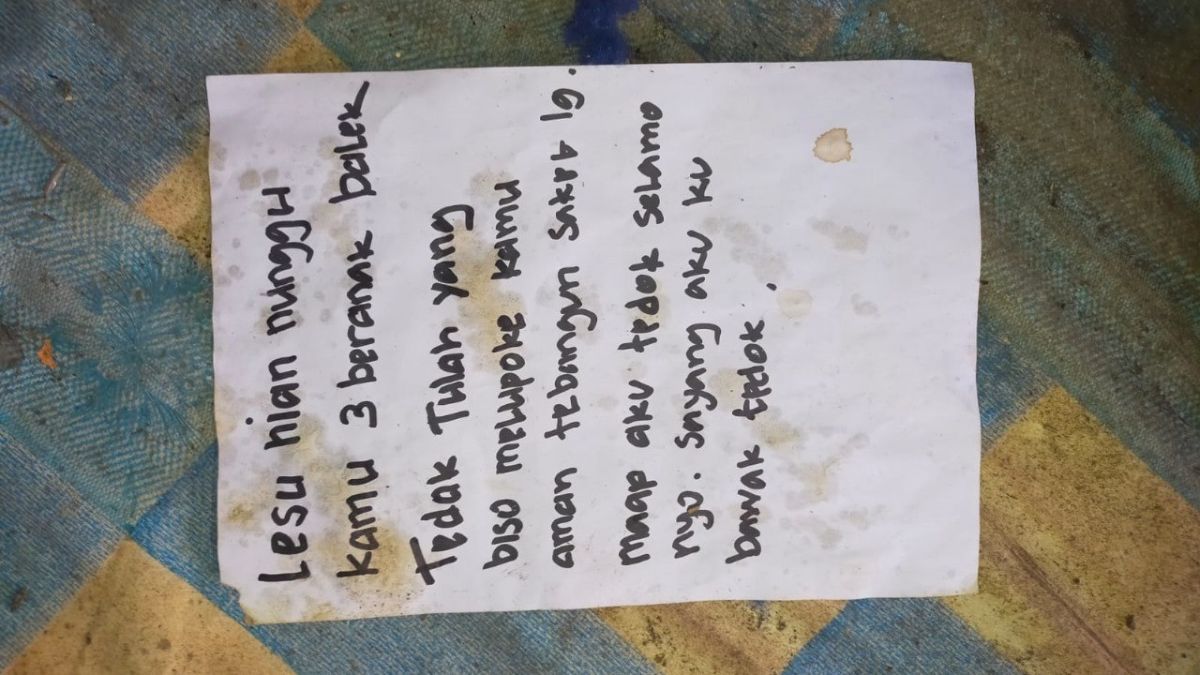 Lesu nian nunggu
kamu 3 beranak balek
Tedak Tulah yang
biso melupoke kamu
aman tebangun sakit lg.
maap aku tedok selamo
nyo. sayang aku ku
bawak tedok.